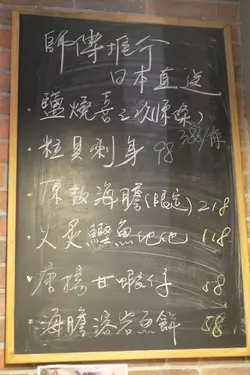 師傅推介
日本直送
· 鹽燒喜之次(原條)
388/條
· 粒貝刺身 98
· 原板海膽(限定) 218
· 火炙鰹魚他他 118
· 唐揚甘蝦仔 58
· 海膽溶岩魚餅 58